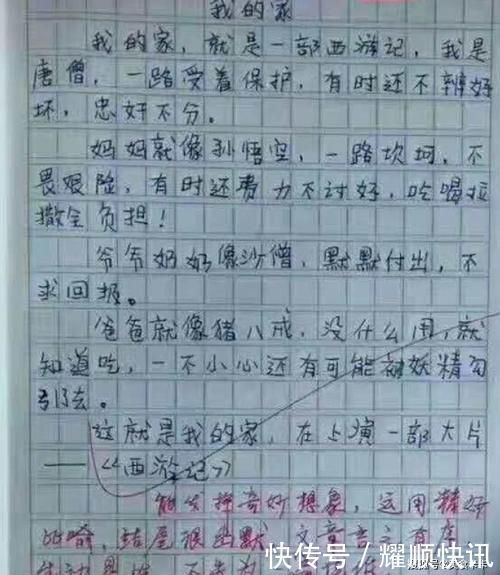 我的家
我的家，就是一部西游记，我是
唐僧，一路受着保护，有时还不辨好
坏，忠奸不分。
妈妈就像孙悟空，一路坎坷，不
畏艰险，有时还费力不讨好，吃喝拉
撒全负担！
爷爷奶奶像沙僧，默默付出，不
求回报。
爸爸就像猪八戒，没什么用，就
知道吃，一不小心还有可能被妖精勾
引去。
这就是我的家，在上演一部大片
——《西游记》
能发挥奇妙想象，运用精妙
的喻，结尾很幽默 文章言之有序
快传号／耀顺快讯